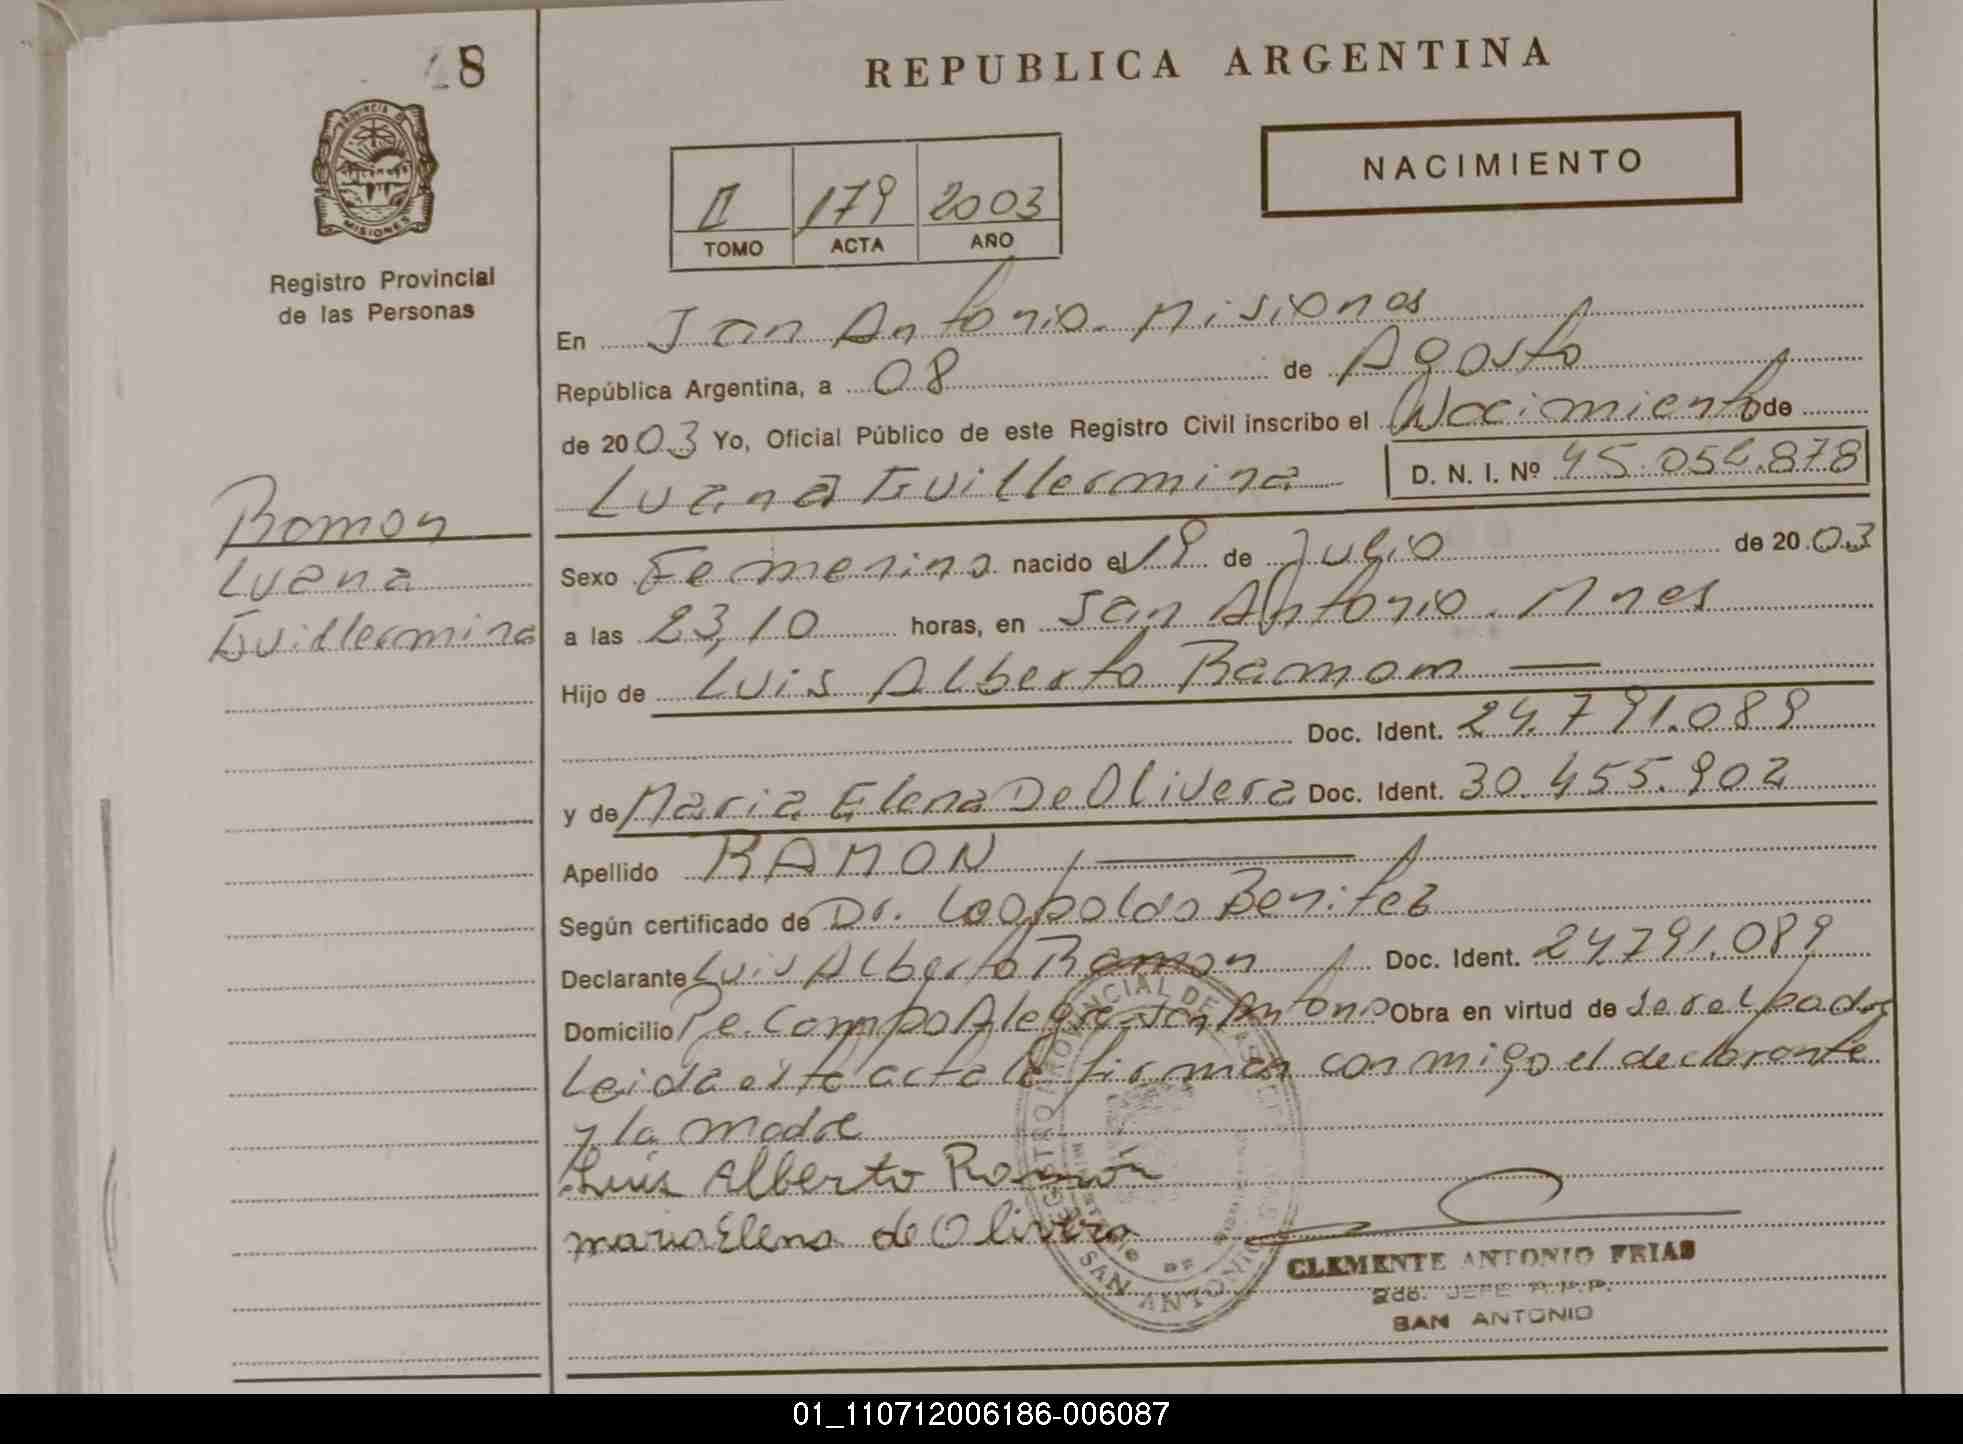 18
REPUBLICA ARGENTINA
NACIMIENTO
PROVINCIA DE
MISIONES
Registro Provincial
de las Personas
II 179 2003
TOMO ACTA AÑO
En San Antonio. Misiones
República Argentina, a 08 de Agosto
de 2003 Yo, Oficial Público de este Registro Civil inscribo el Nacimiento de
Luana Guillermina D. N. I. Nº 45.054.878
Ramon
Luana
Guillermina
Sexo Femenino nacido el 19 de Julio de 2003
a las 23,10 horas, en San Antonio. Mnes
Hijo de Luis Alberto Ramom
Doc. Ident. 24.791.089
y de Maria Elena De Olivera Doc. Ident. 30.455.902
Apellido RAMON
Según certificado de Dr. Leopoldo Benitez
Declarante Luis Alberto Ramon Doc. Ident. 24.791.089
Domicilio Pe. Campo Alegre-San Antonio Obra en virtud de ser el padre
Leida esta acta la firman conmigo el declarante
y la madre
Luis Alberto Ramón
maria Elena de Olivera
REGISTRO PROVINCIAL DE LAS PERSONAS
MINISTERIO DE
SAN ANTONIO
CLEMENTE ANTONIO FRIAS
2do. JEFE R.P.P.
SAN ANTONIO
01_110712006186-006087